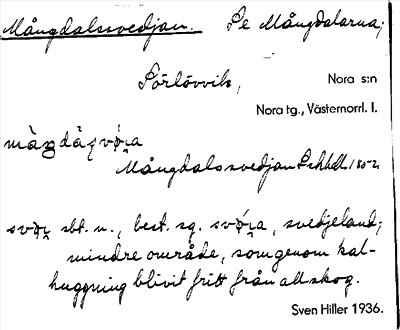 Mångdalssvedjan. Se Mångdalarna;
Sörlövvik, Nora s:n
Nora tg., Västernorrl. l.
Mångdalssvedjan
sbt. n., best. sg. svedjeland;
mindre område, som genom kal-
huggning blivit fritt från all skog.
Sven Hiller 1936.